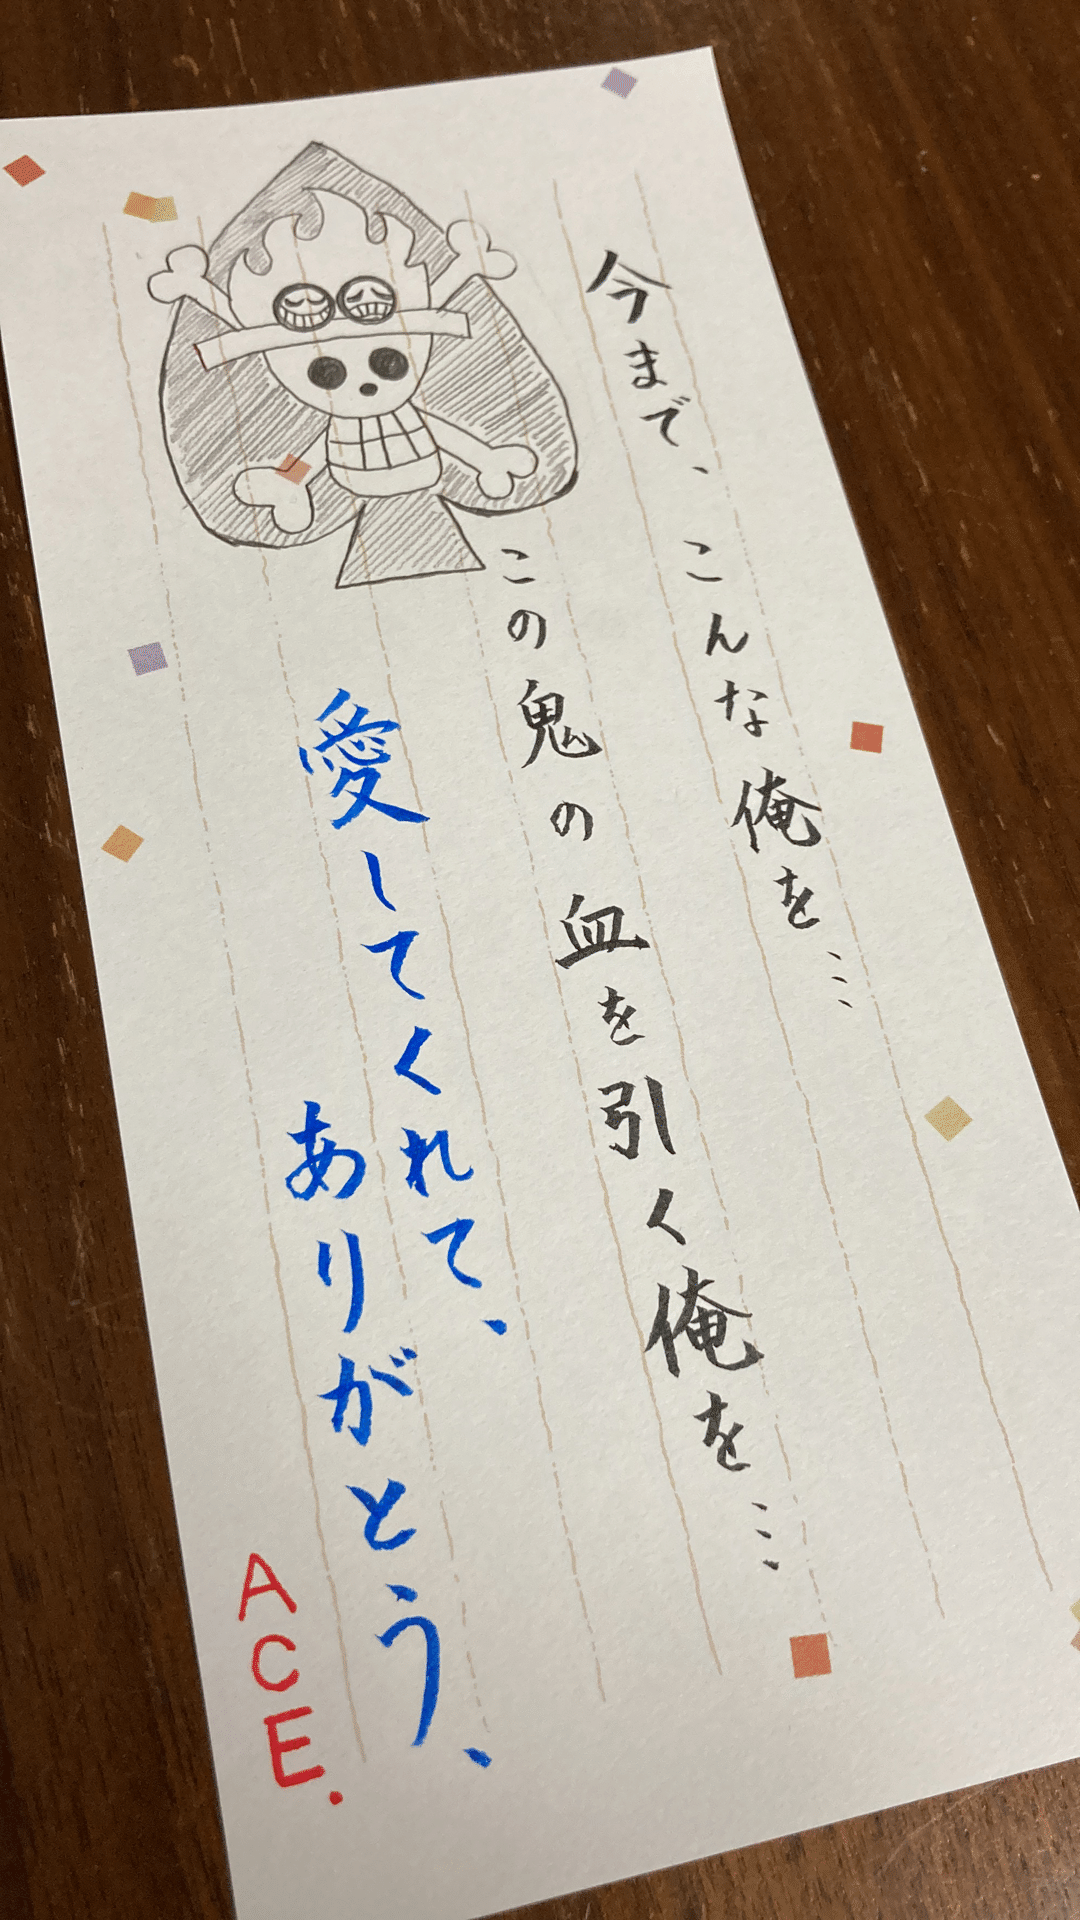 今まで、こんな俺を…
この鬼の血を引く俺を…
愛してくれて、
ありがとう、
ACE.